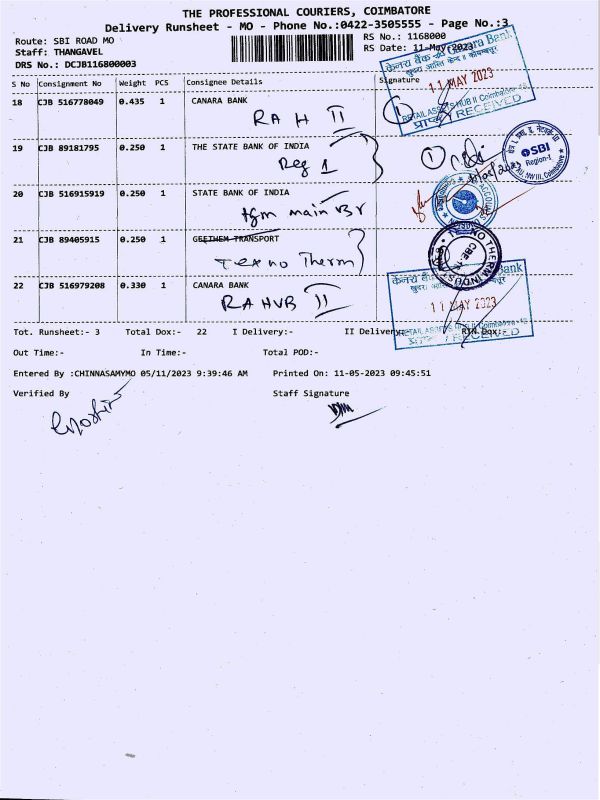 THE PROFESSIONAL COURIERS, COIMBATORE
Delivery Runsheet - MO - Phone No.:0422-3505555 - Page No.:3
Route: SBI ROAD MO
RS No.: 1168000
Staff: THANGAVEL
RS Date: 11-May-2023
DRS No.: DCJB116800003
S No Consignment No Weight PCS Consignee Details Signature
18 CJB 516778049 0.435 1 CANARA BANK
RAH II
केनरा बैंक Canara Bank
11 MAY 2023
RETAIL ASSETS HUB II Coimbatore
RECEIVED
19 CJB 89181795 0.250 1 THE STATE BANK OF INDIA
Reg 1
SBI
Region-I
20 CJB 516915919 0.250 1 STATE BANK OF INDIA
main Br
21 CJB 89405915 0.250 1 GEETHEM TRANSPORT
Texno Therm
22 CJB 516979208 0.330 1 CANARA BANK
RAHUB II
11 MAY 2023
Tot. Runsheet:- 3 Total Dox:- 22 I Delivery:- II Delivery:- RTN Dox:-
Out Time:- In Time:- Total POD:-
Entered By :CHINNASAMYMO 05/11/2023 9:39:46 AM Printed On: 11-05-2023 09:45:51
Verified By Staff Signature